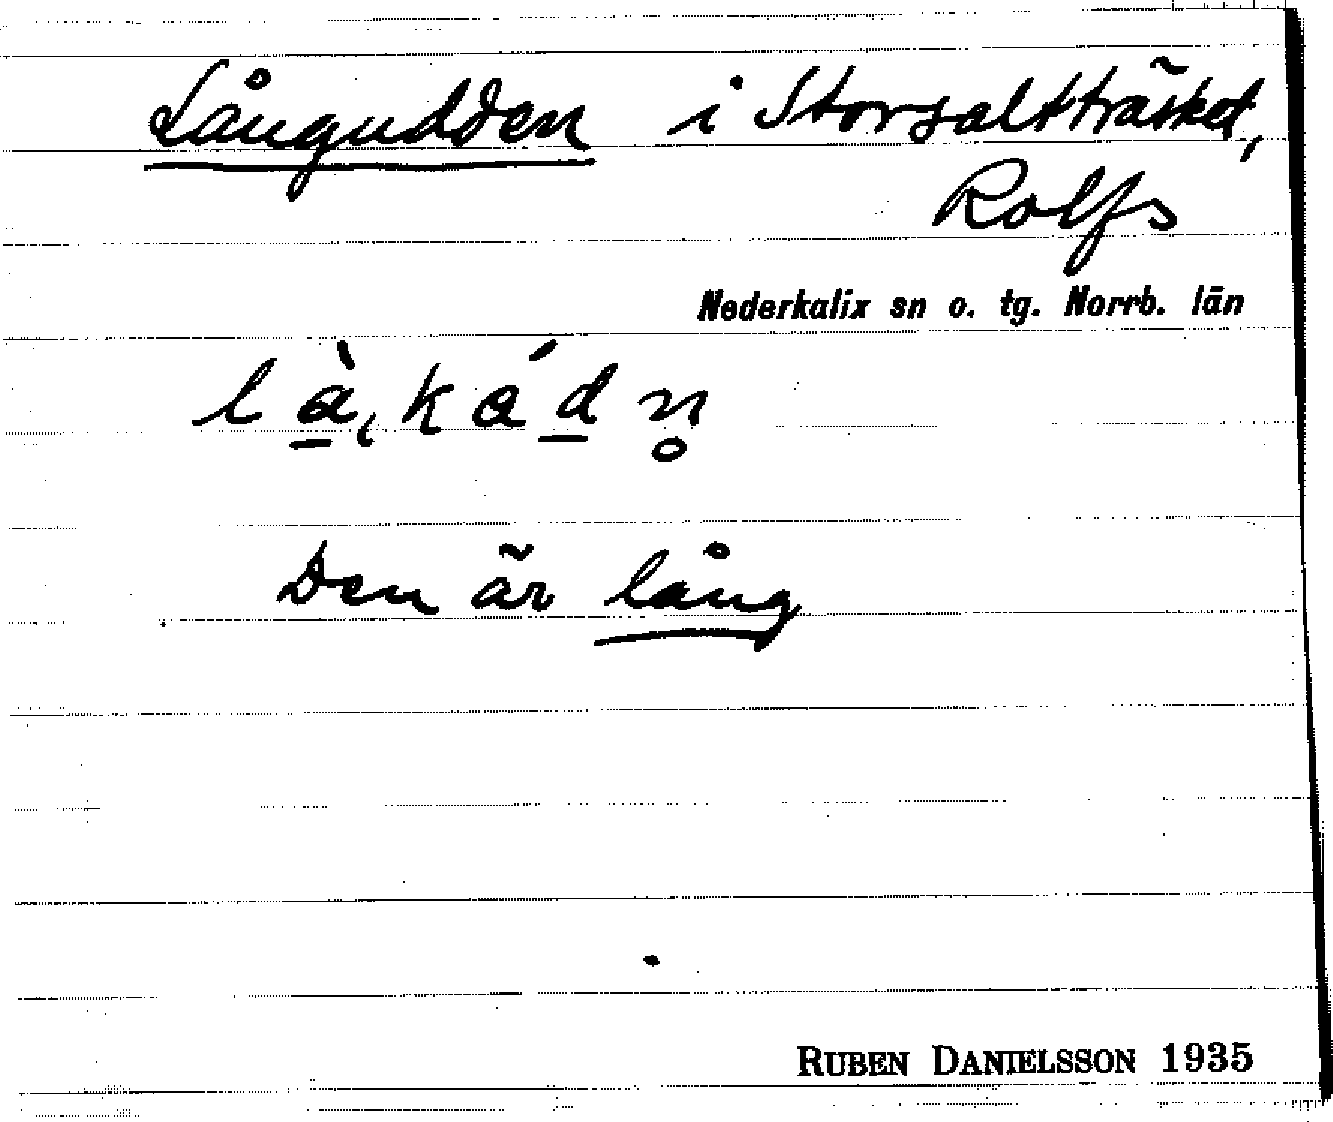 Långudden i Storsaltträsket,
Rolfs
Nederkalix sn o. tg. Norrb. län
là̱ˌkáḏn̥
Den är lång
RUBEN DANIELSSON 1935